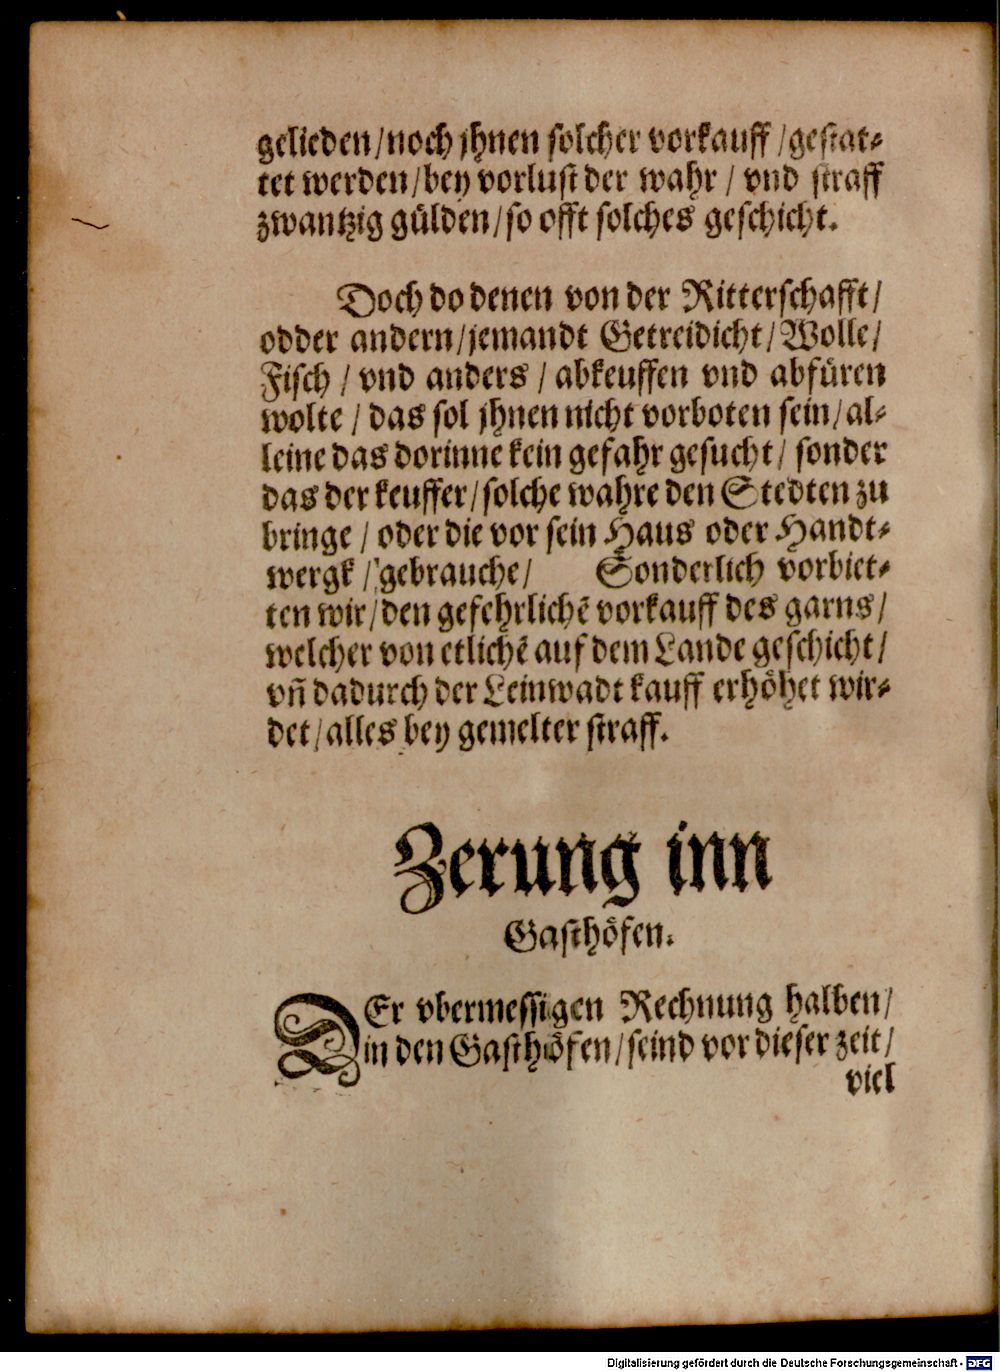 gelieden/noch jhnen solcher vorkauff/gestat⸗
tet werden/bey vorlust der wahr/vnd straff
zwantzig gülden/so offt solches geschicht.
Doch do denen von der Ritterschafft/
odder andern/jemandt Getreidicht/Wolle/
Fisch/vnd anders/abkeuffen vnd abfüren
wolte/das sol jhnen nicht vorboten sein/al⸗
leine das dorinne kein gefahr gesucht/sonder
das der keuffer/solche wahre den Stedten zu
bringe/oder die vor sein Haus oder Handt⸗
wergk/gebrauche/ Sonderlich vorbiet⸗
ten wir/den gefehrlichẽ vorkauff des garns/
welcher von etlichẽ auf dem Lande geschicht/
vñ dadurch der Leinwadt kauff erhöhet wir⸗
det/alles bey gemelter straff.
Zerung inn
Gasthöfen.
DEr vbermessigen Rechnung halben/
in den Gasthöfen/seind vor dieser zeit/
viel
Digitalisierung gefördert durch die Deutsche Forschungsgemeinschaft - DFG